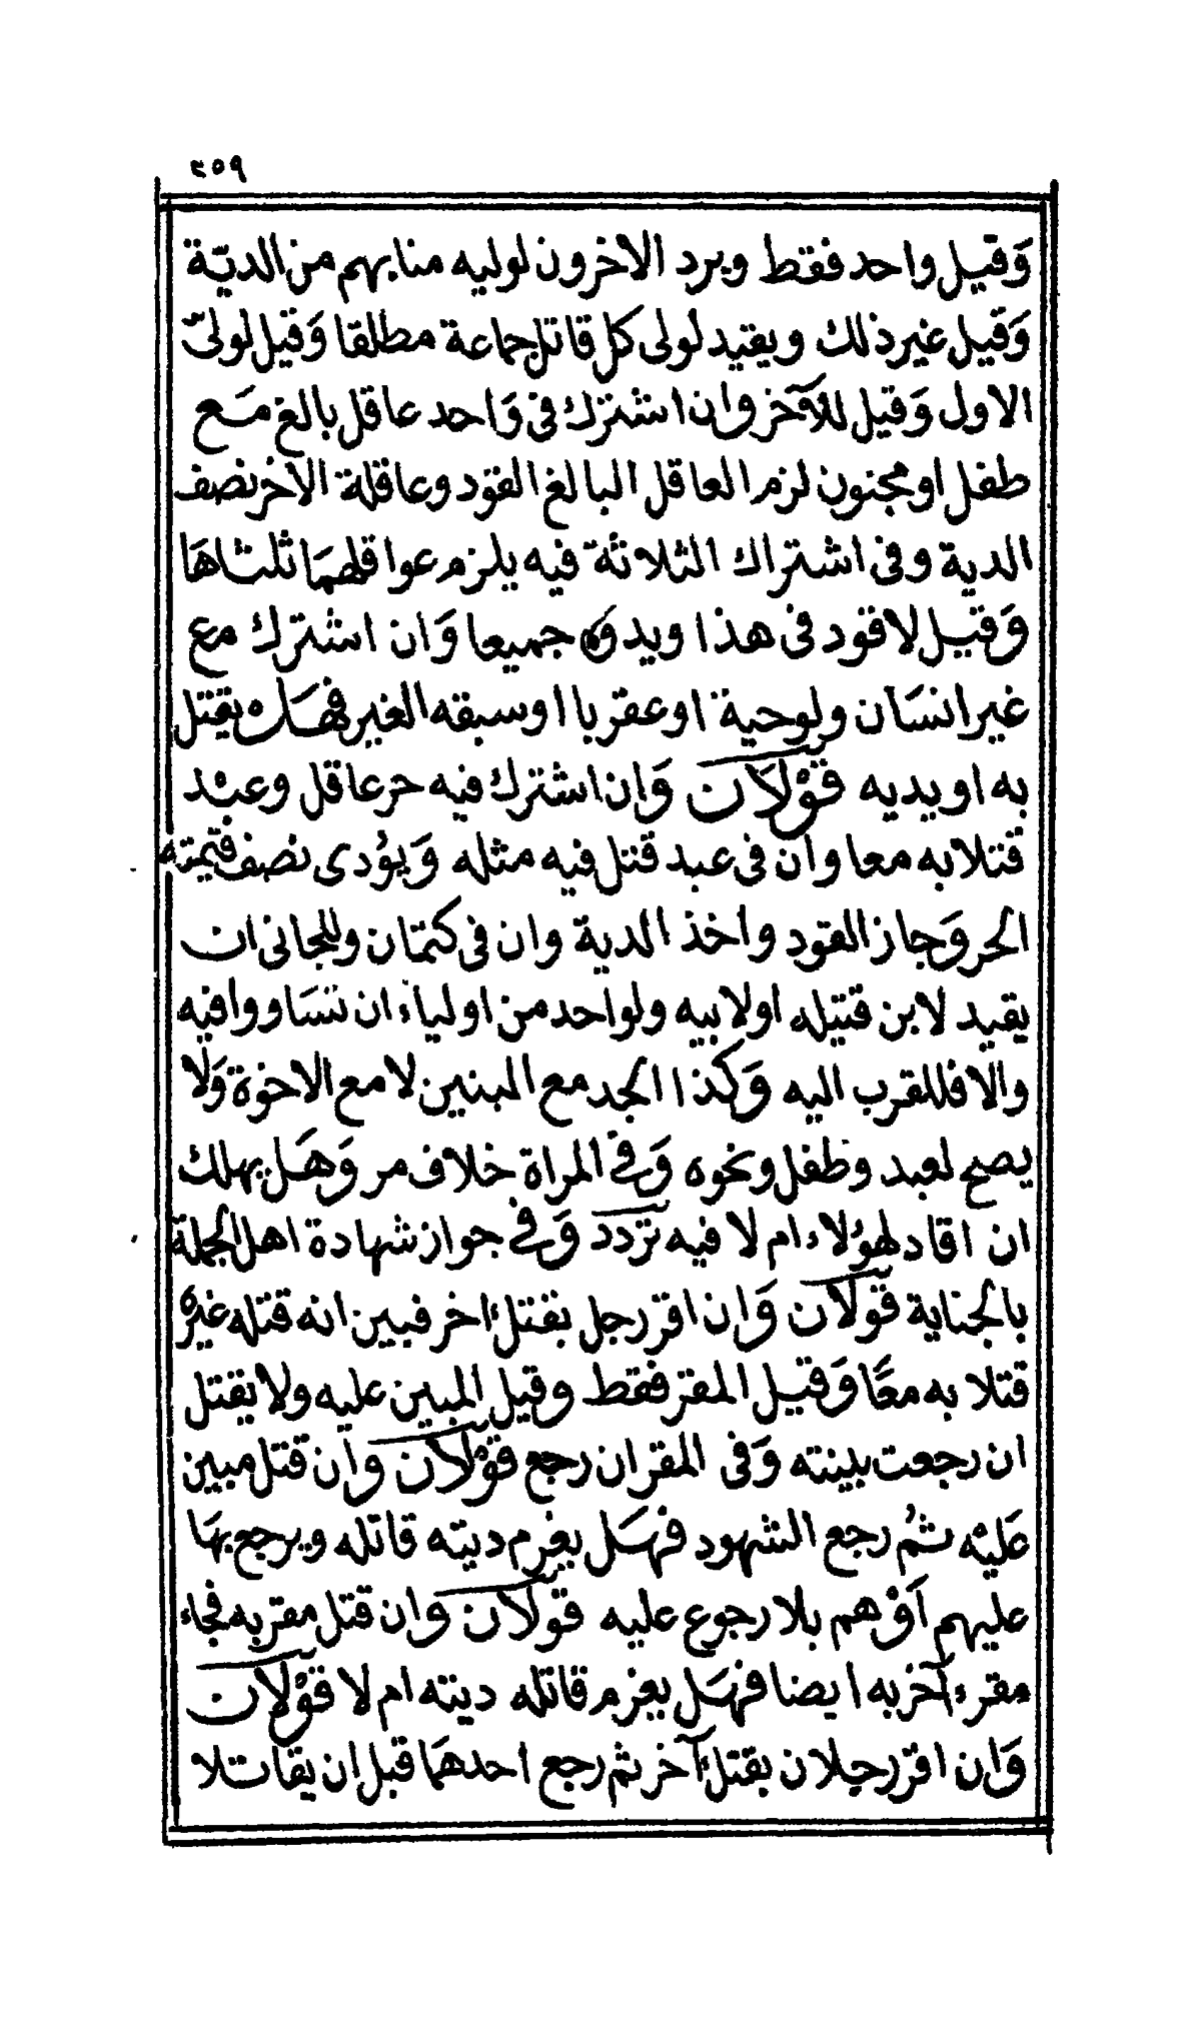 ٢٥٩
وَقيل واحد فقط ويرد الاخرون لوليه منابهم من الديّة
وَقيل غير ذلك ويقيد لولى كل قاتل جماعة مطلقا وَقيل لولىّ
الاول وَقيل للآخر وان اشترك فى وَاحد عاقل بالغ مَع
طفل او مجنون لزم العاقل البالغ القود وعاقلة الآخر نصف
الدية وفى اشتراك الثلاثة فيه يلزم عواقلهمَا ثلثاهَا
وَقيل لا قود فى هذا ويدوه جميعا وَان اشترك مع
غير انسَان ولو حية او عقربا او سبقه الغير فهَل يقتل
به او يديه قوْلَان وَان اشترك فيه حر عاقل وعبْد
قتلا به معا وان فى عبد قتل فيه مثله وَيؤدى نصف قيمته
الحر وَجاز القود واخذ الدية وان فى كتمان وللجانى ان
يقيد لابن قتيله او لابيه ولواحد من اولياء ان تسَاووا فيه
والا فللقرب اليه وَكذا الجد مع البنين لا مع الاخوة وَلا
يصح لعبد وطفل ونحوه وَفى المراة خلاف مر وَهَل يهلك
ان اقاد لهؤلاء ام لا فيه تردد وَفى جواز شهادة اهل الجملة
بالجناية قولان وَان اقر رجل بقتل اخر فبين انه قتله غيره
قتلا به معًا وَقيل المقر فقط وقيل المبين عليه ولا يقتل
ان رجعت بينته وَفى المقر ان رجع قوْلان وان قتل مبين
عَليْه ثمُ رجع الشهود فهَل يغرم ديته قاتله ويرجع بهَا
عليهم أَوْ هم بلا رجوع عليه قولان وان قتل مقر به فجاء
مقر آخر به ايضا فهَل يغرم قاتله ديته ام لا قوْلان
وَان اقر رجلان بقتل آخر ثم رجع احدهمَا قبل ان يقاتلا